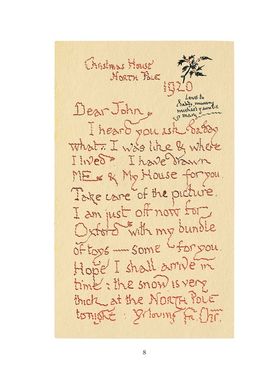 Christmas House
NORTH POLE
1920
Love to
daddy, mummy
michael & auntie
mary
Dear John
I heard you ask daddy
what I was like & where
I lived I have drawn
ME & My House for you
Take care of the picture.
I am just off now for
Oxford with my bundle
of toys — some for you.
Hope I shall arrive in
time : the snow is very
thick at the NORTH POLE
tonight : Yr loving Fr. Chr.
8